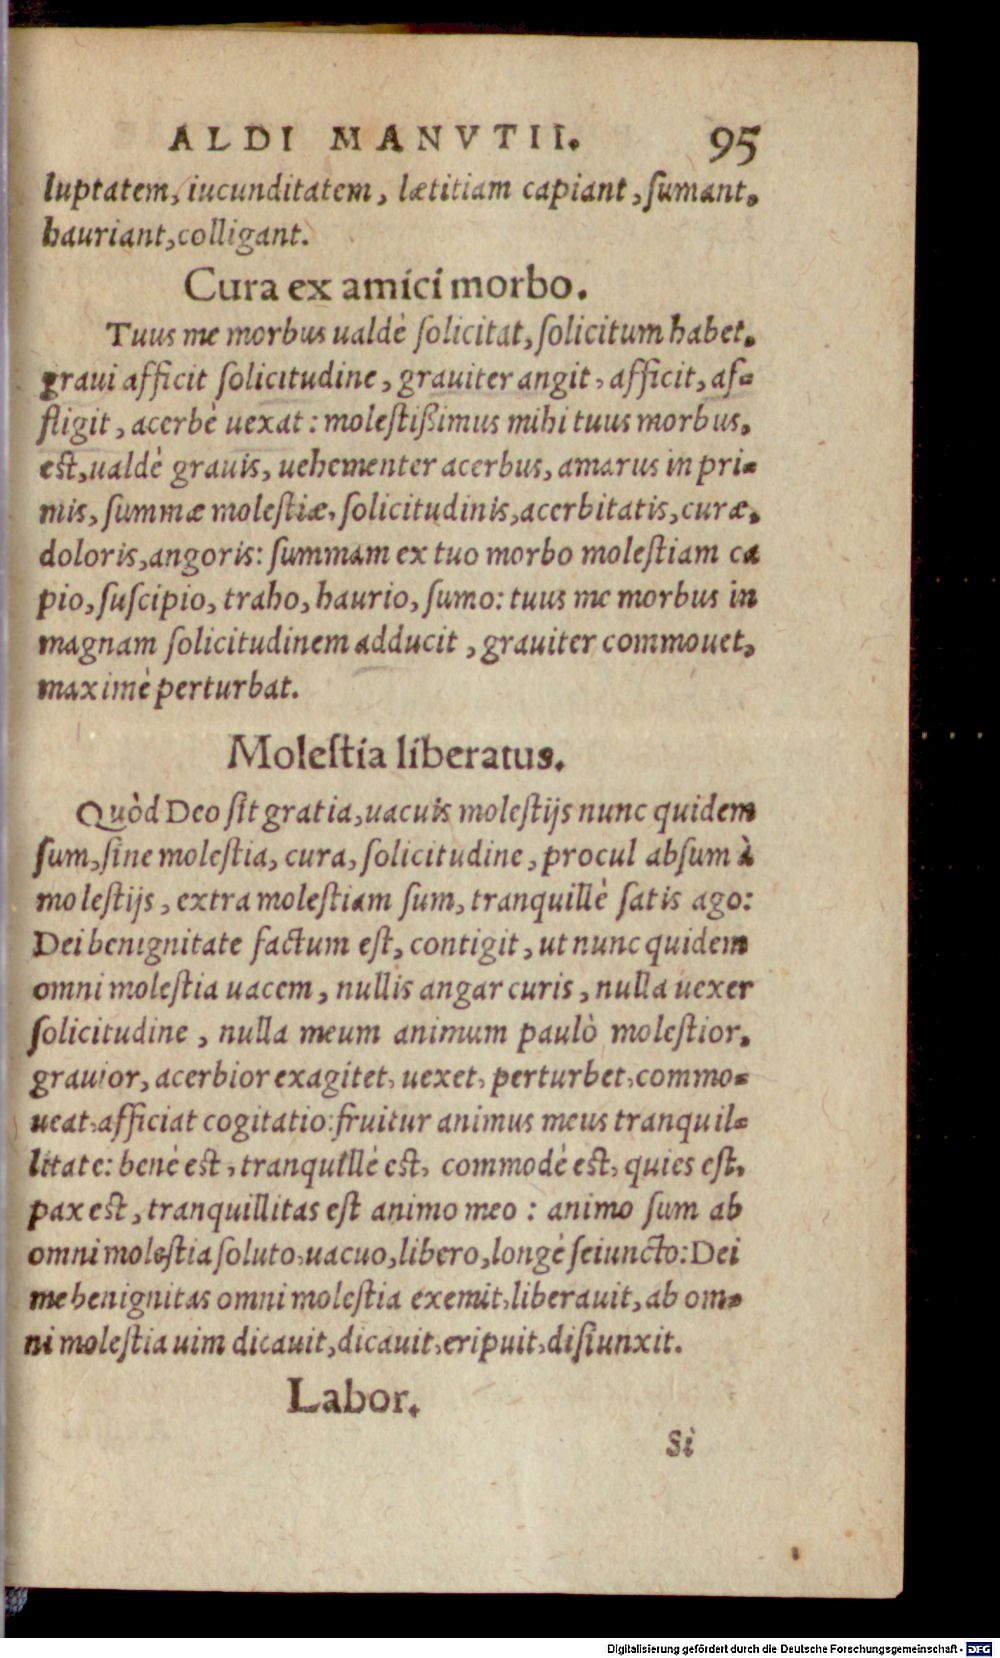 ALDI MANVTII. 95
luptatem, iucunditatem, lætitiam capiant, ſumant,
hauriant, colligant.
Cura ex amici morbo.
Tuus me morbus ualdè ſolicitat, ſolicitum habet,
graui afficit ſolicitudine, grauiter angit, afficit, af=
fligit, acerbè uexat: moleſtißimus mihi tuus morbus,
eſt, ualdè grauis, uehementer acerbus, amarus in pri=
mis, ſummæ moleſtiæ, ſolicitudinis, acerbitatis, curæ,
doloris, angoris: ſummam ex tuo morbo moleſtiam ca
pio, ſuſcipio, traho, haurio, ſumo: tuus me morbus in
magnam ſolicitudinem adducit, grauiter commouet,
maximè perturbat.
Moleſtia liberatus.
Quòd Deo ſit gratia, uacuis moleſtijs nunc quidem
ſum, ſine moleſtia, cura, ſolicitudine, procul abſum à
moleſtijs, extra moleſtiam ſum, tranquillè ſatis ago:
Dei benignitate factum eſt, contigit, ut nunc quidem
omni moleſtia uacem, nullis angar curis, nulla uexer
ſolicitudine, nulla meum animum paulò moleſtior,
grauior, acerbior exagitet, uexet, perturbet, commo=
ueat, afficiat cogitatio: fruitur animus meus tranquil=
litate: benè eſt, tranquillè eſt, commodè eſt, quies eſt,
pax eſt, tranquillitas eſt animo meo: animo ſum ab
omni moleſtia ſoluto, uacuo, libero, longè ſeiuncto: Dei
me benignitas omni moleſtia exemit, liberauit, ab om=
ni moleſtia uim dicauit, dicauit, eripuit, diſiunxit.
Labor.
Si
Digitalisierung gefördert durch die Deutsche Forschungsgemeinschaft - DFG